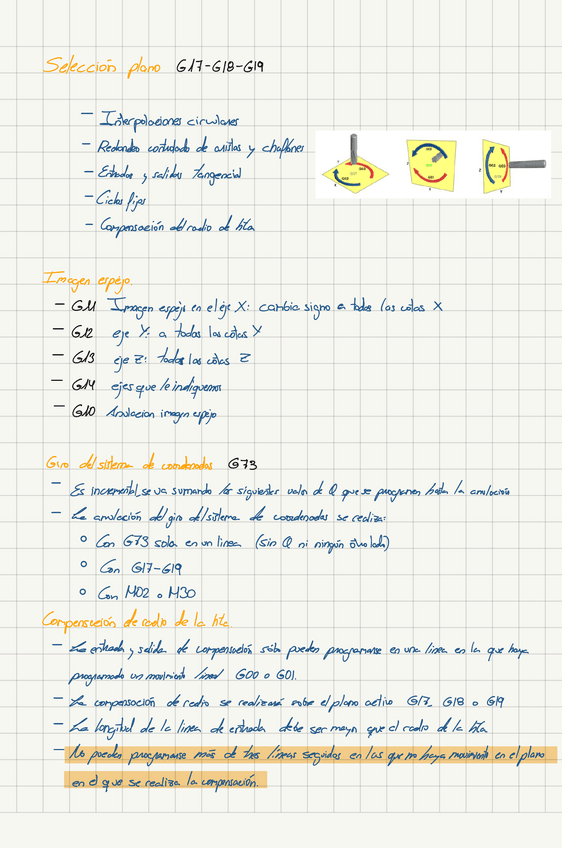 Selección plano G17-G18-G19
- Interpolaciones circulares
- Redondeo controlado de aristas y chaflanes
- Entradas y salidas tangencial
- Ciclos fijos
- Compensación del radio de hta
Imagen espejo.
- G11 Imagen espejo en el eje X: cambia signo a todas las cotas X
- G12 eje Y: a todas las cotas Y
- G13 eje Z: todas las cotas Z
- G14 ejes que le indiquemos
- G10 Anulacion imagen espejo
Giro del sistema de coordenadas G73
- Es incremental, se va sumando los siguientes valor de Q que se programen hasta la anulación
- La anulación del giro del sistema de coordenadas se realiza:
o Con G73 sola en un linea (sin Q ni ningún otro lado)
o Con G17-G19
o Con M02 o M30
Compensación de radio de la hta.
- La entrada y salida de compensación sólo pueden programarse en una linea en la que haya
programado un movimiento lineal G00 o G01.
- La compensación de radio se realizará sobre el plano activo G17, G18 o G19
- La longitud de la linea de entrada debe ser mayor que el radio de la hta
- No pueden programarse más de tres líneas seguidas en las que no haya movimiento en el plano
en el que se realiza la compensación.